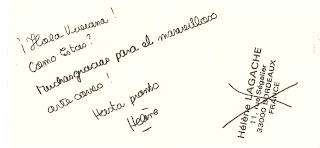 ¡Hola Viviana!
Como Estas?
Muchas gracias para el maravilloso
arte correo!
Hasta pronto
Helène
Hélène LAGACHE
11, rue Ségalier
33000 BORDEAUX
FRANCE